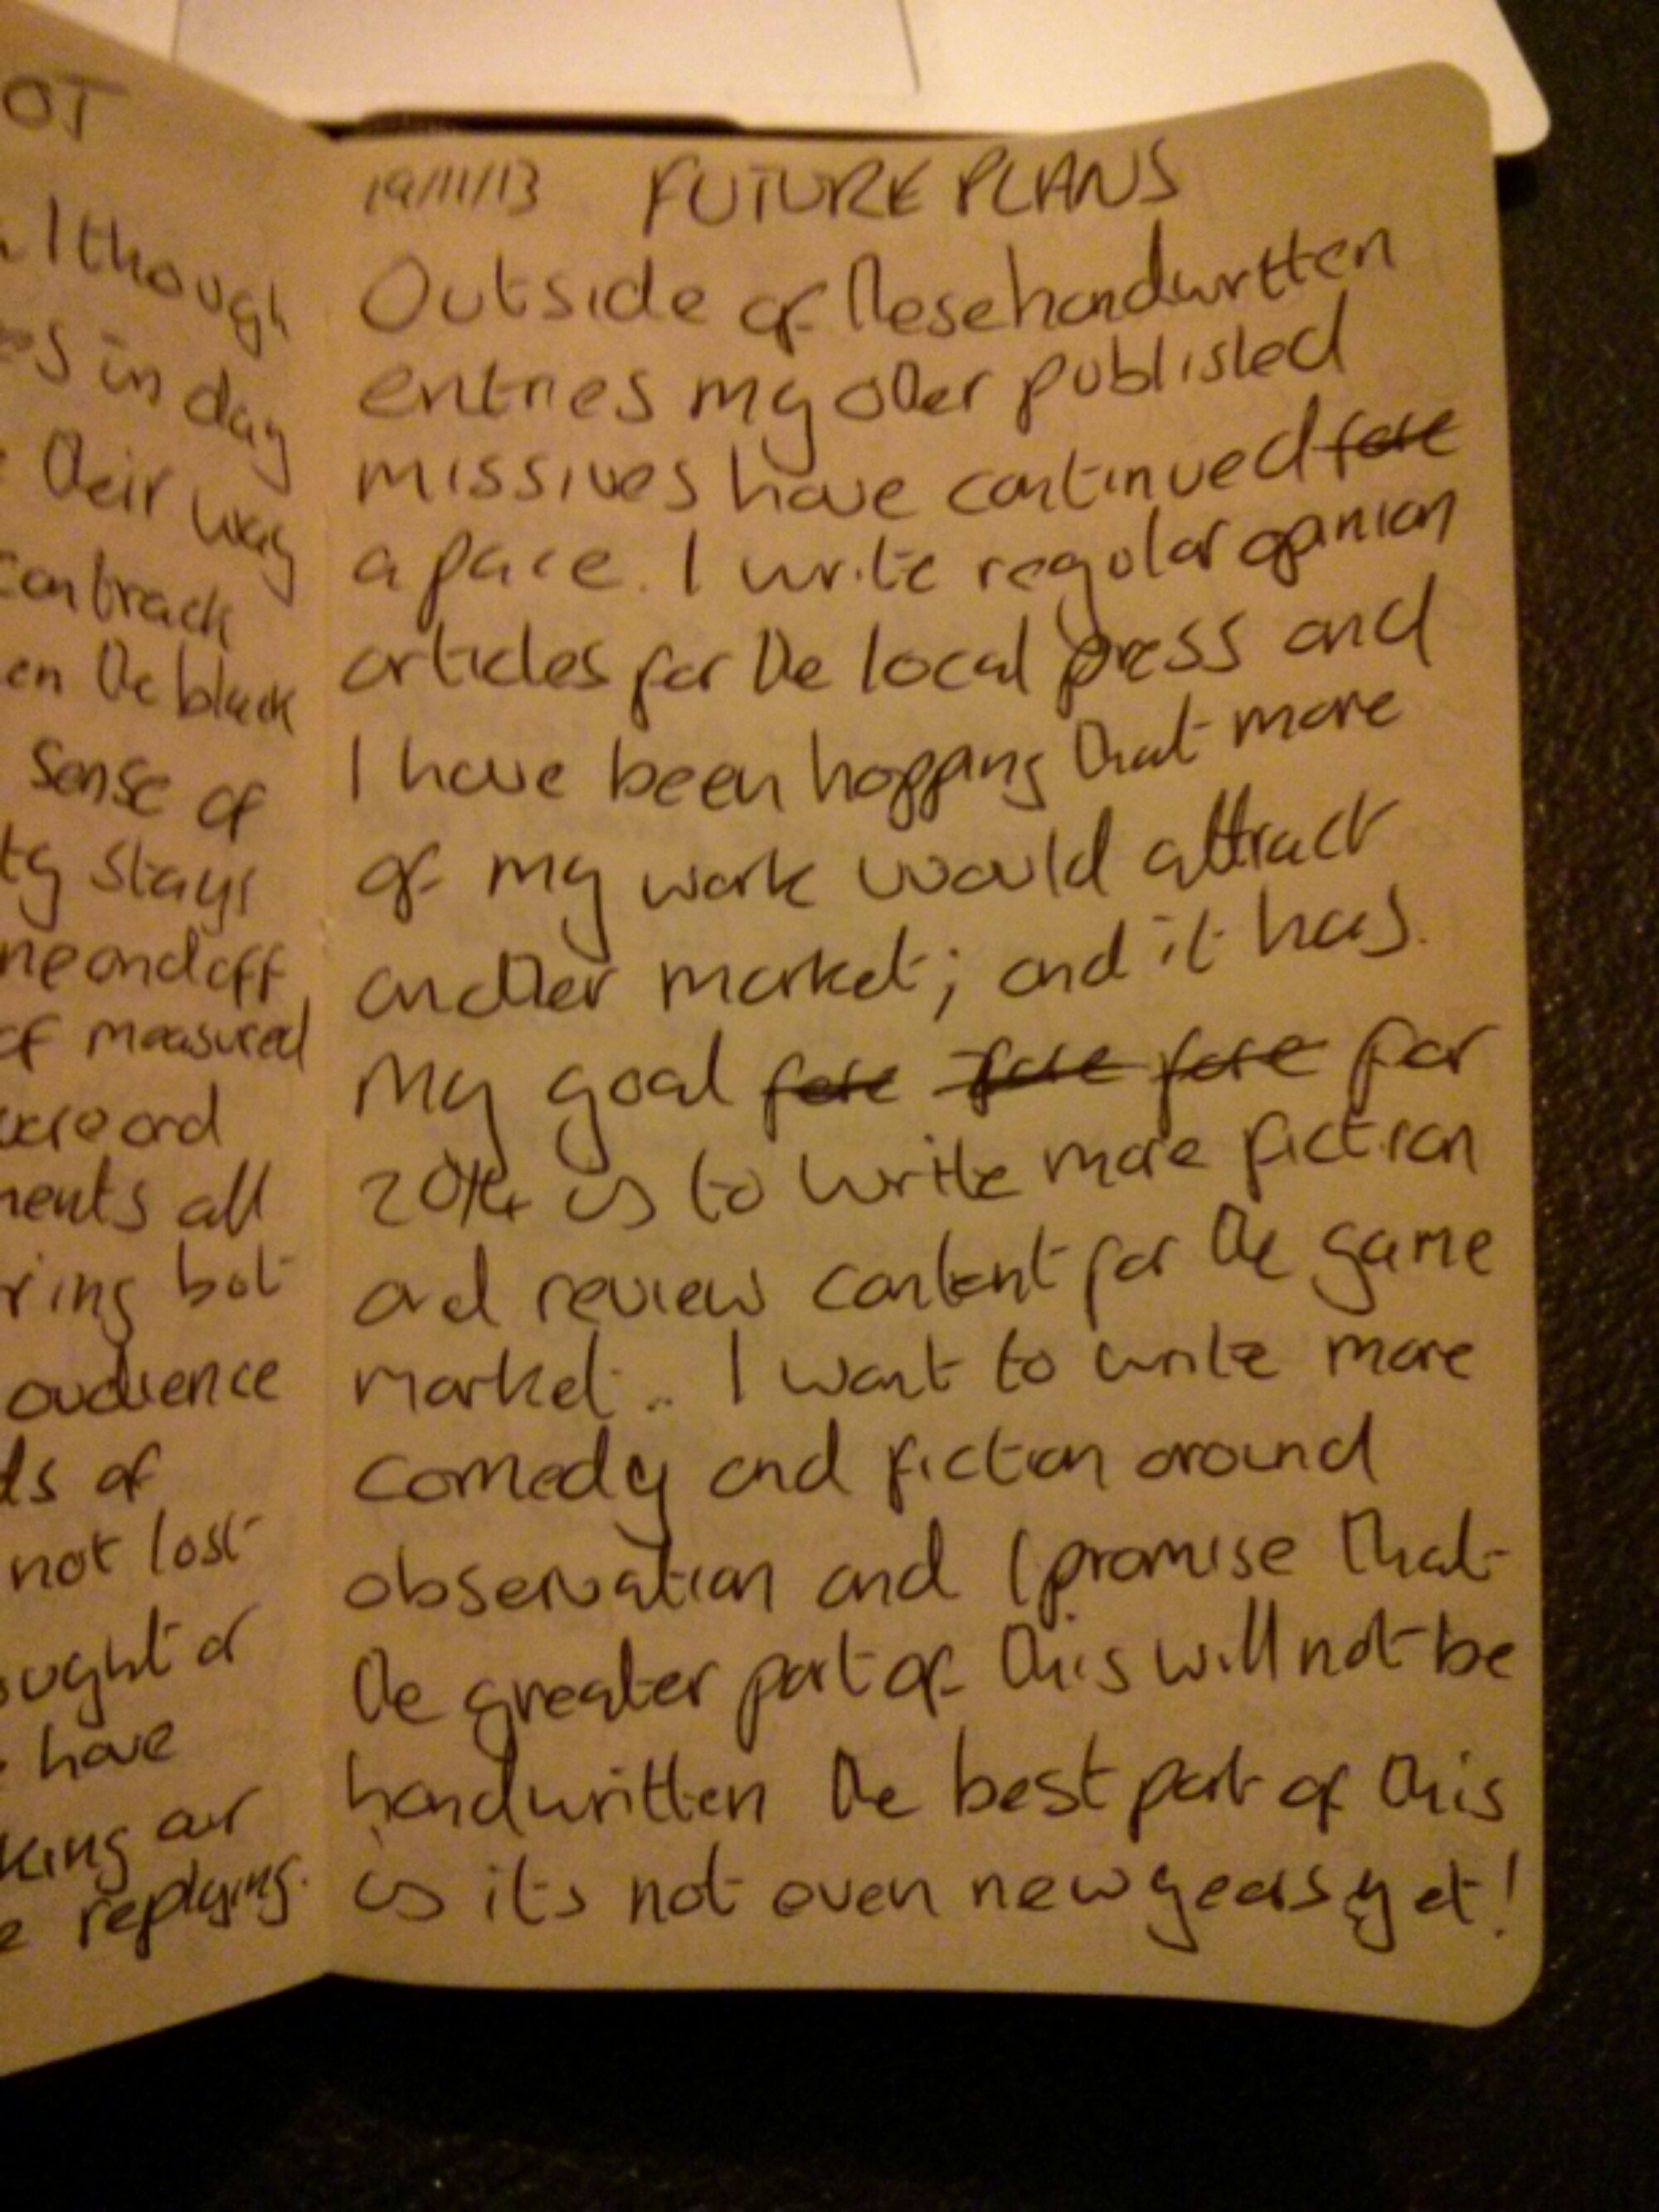 OT
although
es in day
their way
contrack
en the black
Sense of
ty stays
ne and off
of measured
ord
ments all
ring bot
audience
ds of
not lost
ought or
have
king our
replying.
19/11/13 FUTURE PLANS
Outside of these handwrtten
entries my other published
missives have continued fore
apace. I write regular opinion
articles for the local press and
I have been hopping that more
of my work would attract
another market; and it has.
My goal fore fore fore for
2014 is to write more fiction
and review content for the game
market.. I want to write more
comedy and fiction around
observation and I promise that
the greater part of this will not be
handwritten the best part of this
is its not even new years yet!